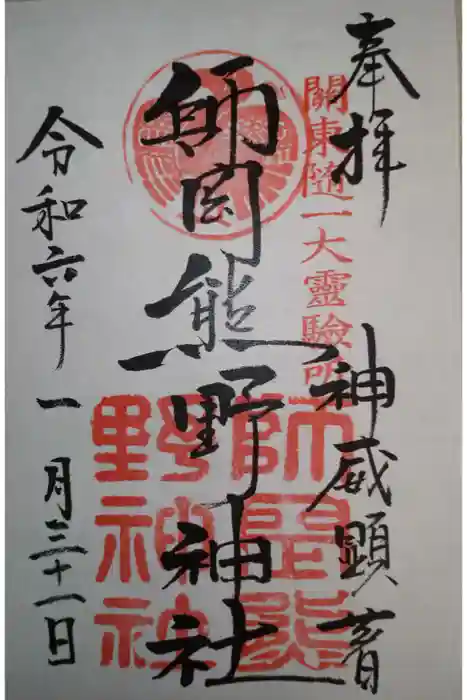 奉拝
神威顕著
關東随一大靈驗所
師岡熊野神社
師岡熊
野神社
令和六年一月三十一日